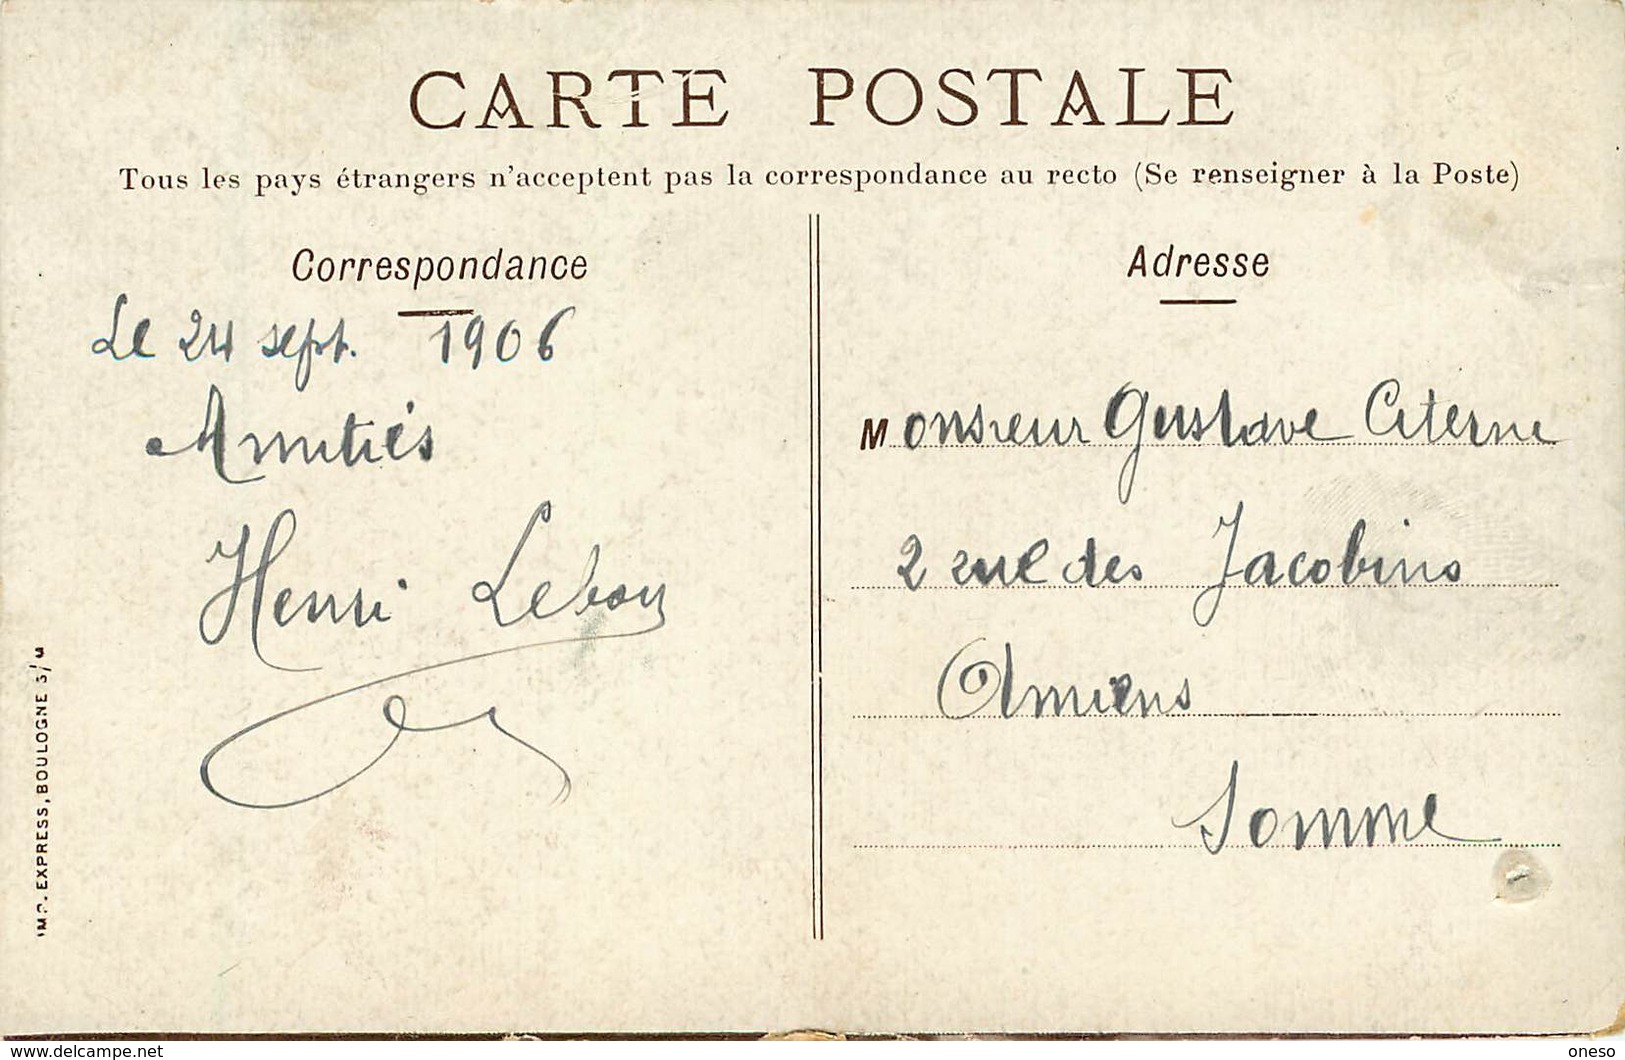 CARTE POSTALE
Tous les pays étrangers n'acceptent pas la correspondance au recto (Se renseigner à la Poste)
Correspondance
Le 24 sept. 1906
Amitiés
Henri Lebon
Adresse
Monsieur Gustave Citerne
2 rue des Jacobins
Amiens
Somme
IMP. EXPRESS, BOULOGNE S/
www.delcampe.net
oneso